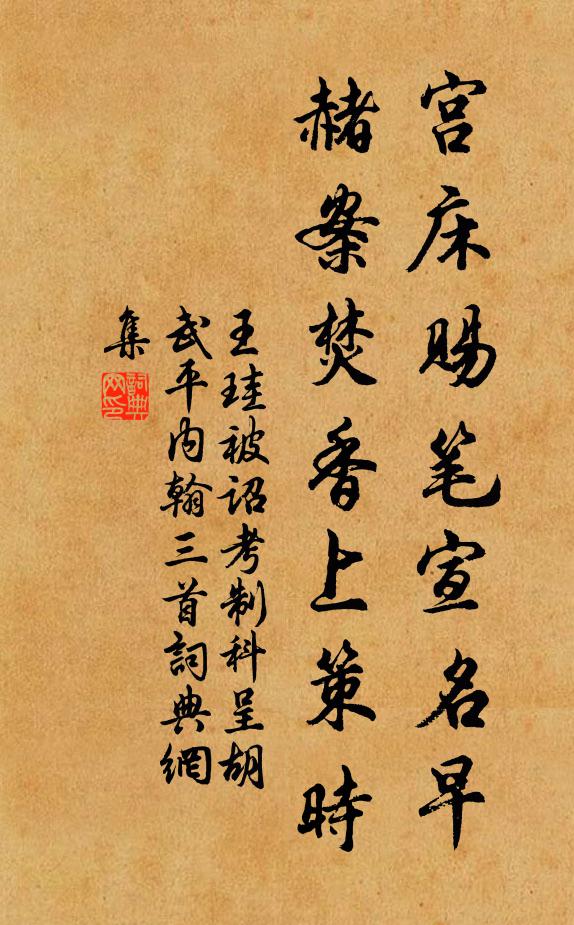 宫床赐笔宣名早
赭案焚香上策時
王珪被诏考制科呈胡
武平内翰三首詞典網
集
詞典网印